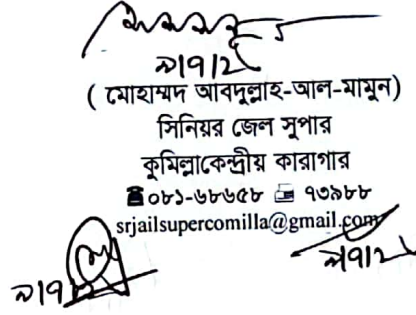 ( মোহাম্মদ আবদুল্লাহ-আল-মামুন)
সিনিয়র জেল সুপার
কুমিল্লাকেন্দ্রীয় কারাগার
☎০৮১-৬৮৬৫৮ 📠 ৭৩৯৮৮
srjailsupercomilla@gmail.com